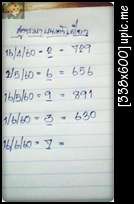 16/4/60 = 2 = 789
2/5/60 = 6 = 656
16/5/60 = 9 = 391
1/6/60 = 3 = 630
16/6/60 = 7 =
[338x600] upic.me